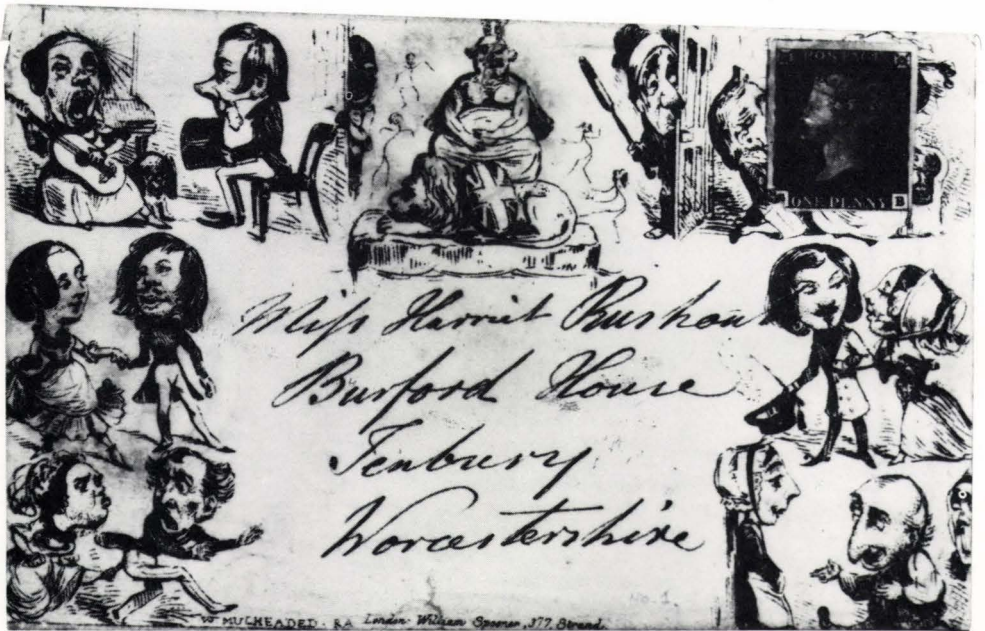 POSTAGE
ONE PENNY B
Miſs Harriet Rushout
Burford House
Tenbury
Worcestershire
No. 1.
MULHEADED. RA London. William Spooner, 377, Strand.